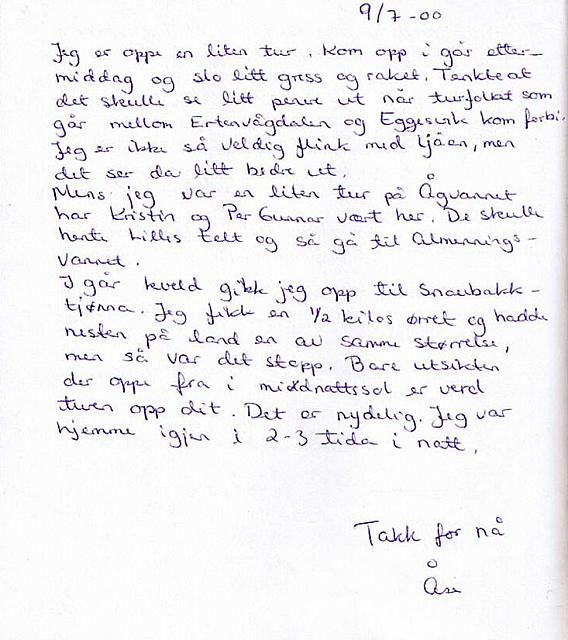 9/7-00
Jeg er oppe en liten tur. Kom opp i går etter-
middag og slo litt gress og raket. Tenkte at
det skulle se litt penere ut når turfolket som
går mellom Ertenvågdalen og Eggesvik kom forbi.
Jeg er ikke så veldig flink med ljåen, men
det ser da litt bedre ut.
Mens jeg var en liten tur på Ågvannet
har Kristin og Per Gunnar vært her. De skulle
hente Lillis telt og så gå til Almennings-
vannet.
I går kveld gikk jeg opp til Snaubakk-
tjønna. Jeg fikk en 1/2 kilos ørret og hadde
nesten på land en av samme størrelse,
men så var det stopp. Bare utsikten
der oppe fra i middnattssol er verd
turen opp dit. Det er nydelig. Jeg var
hjemme igjen i 2-3 tida i natt.
Takk for nå
Åse